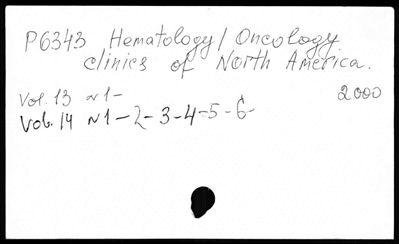 P6343 Hematology/Oncology
clinics of North America.
Vol. 13 N1- 2000
Vol. 14 N1-2-3-4-5-6-